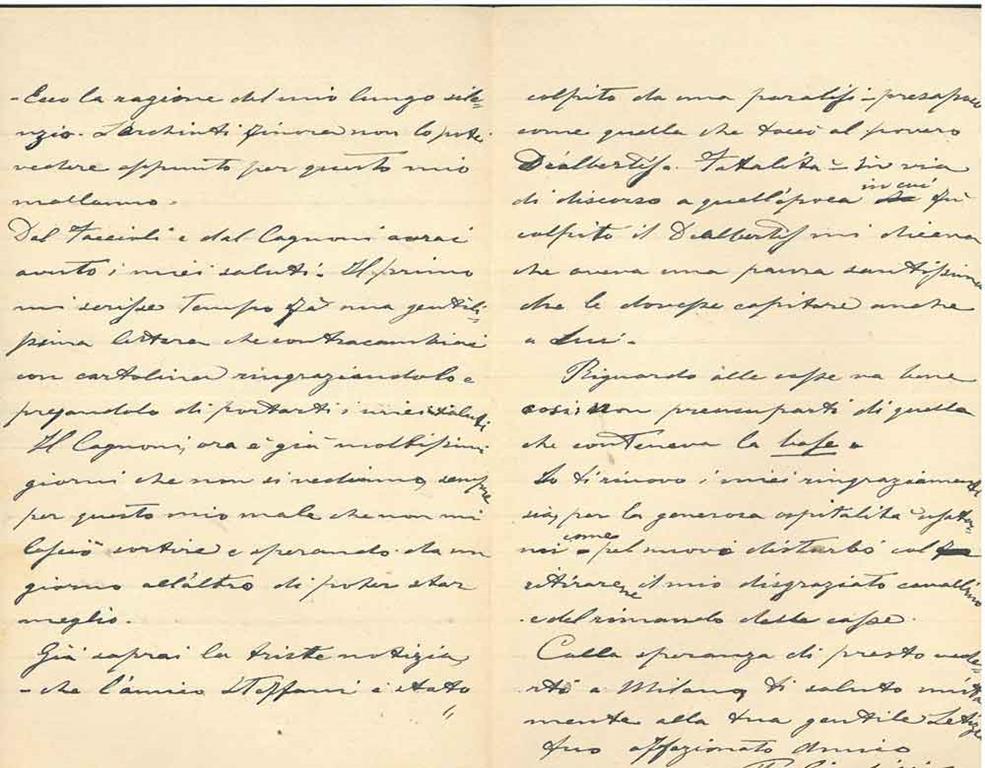 - Ecco la ragione del mio lungo sile=
nzio. L'archinti finora non lo pote.
vedere appunto per questo mio
malanno.
Dal Faccioli e dal Cagnoni avrai
avuto i miei saluti. Il primo
mi scrisse tempo fà una gentili=
ssima lettera che contracambiai
con cartolina ringraziandolo e
pregandolo di portarti i miei saluti
Il Cagnoni, ora è già moltissimi
giorni che non si vediamo, sempre
per questo mio male che non mi
lasciò sortire e sperando da un
giorno all'altro di poter star
meglio.
Già saprai la triste notizia,
- che l'amico Steffani è stato
"
colpito da una paralisi -
come quella che toccò al povero
Dealbertis. Fatalità - In via
di discorso a quell'epoca in cui fù
colpito il Dealbertis mi diceva
che aveva una paura santissima
che le dovesse capitare anche
a Lui.
Riguardo alle casse va bene
così, non preoccuparti di quella
che conteneva la base.
Io ti rinnovo i miei ringraziamenti
sia, per la generosa ospitalità usata=
mi come pel nuovo disturbo col
ritirarne il mio disgraziato cavallino
e del rimando delle casse.
Colla speranza di presto vede=
rti a Milano, ti saluto unita
mente alla tua gentile
tuo affezionato Amico